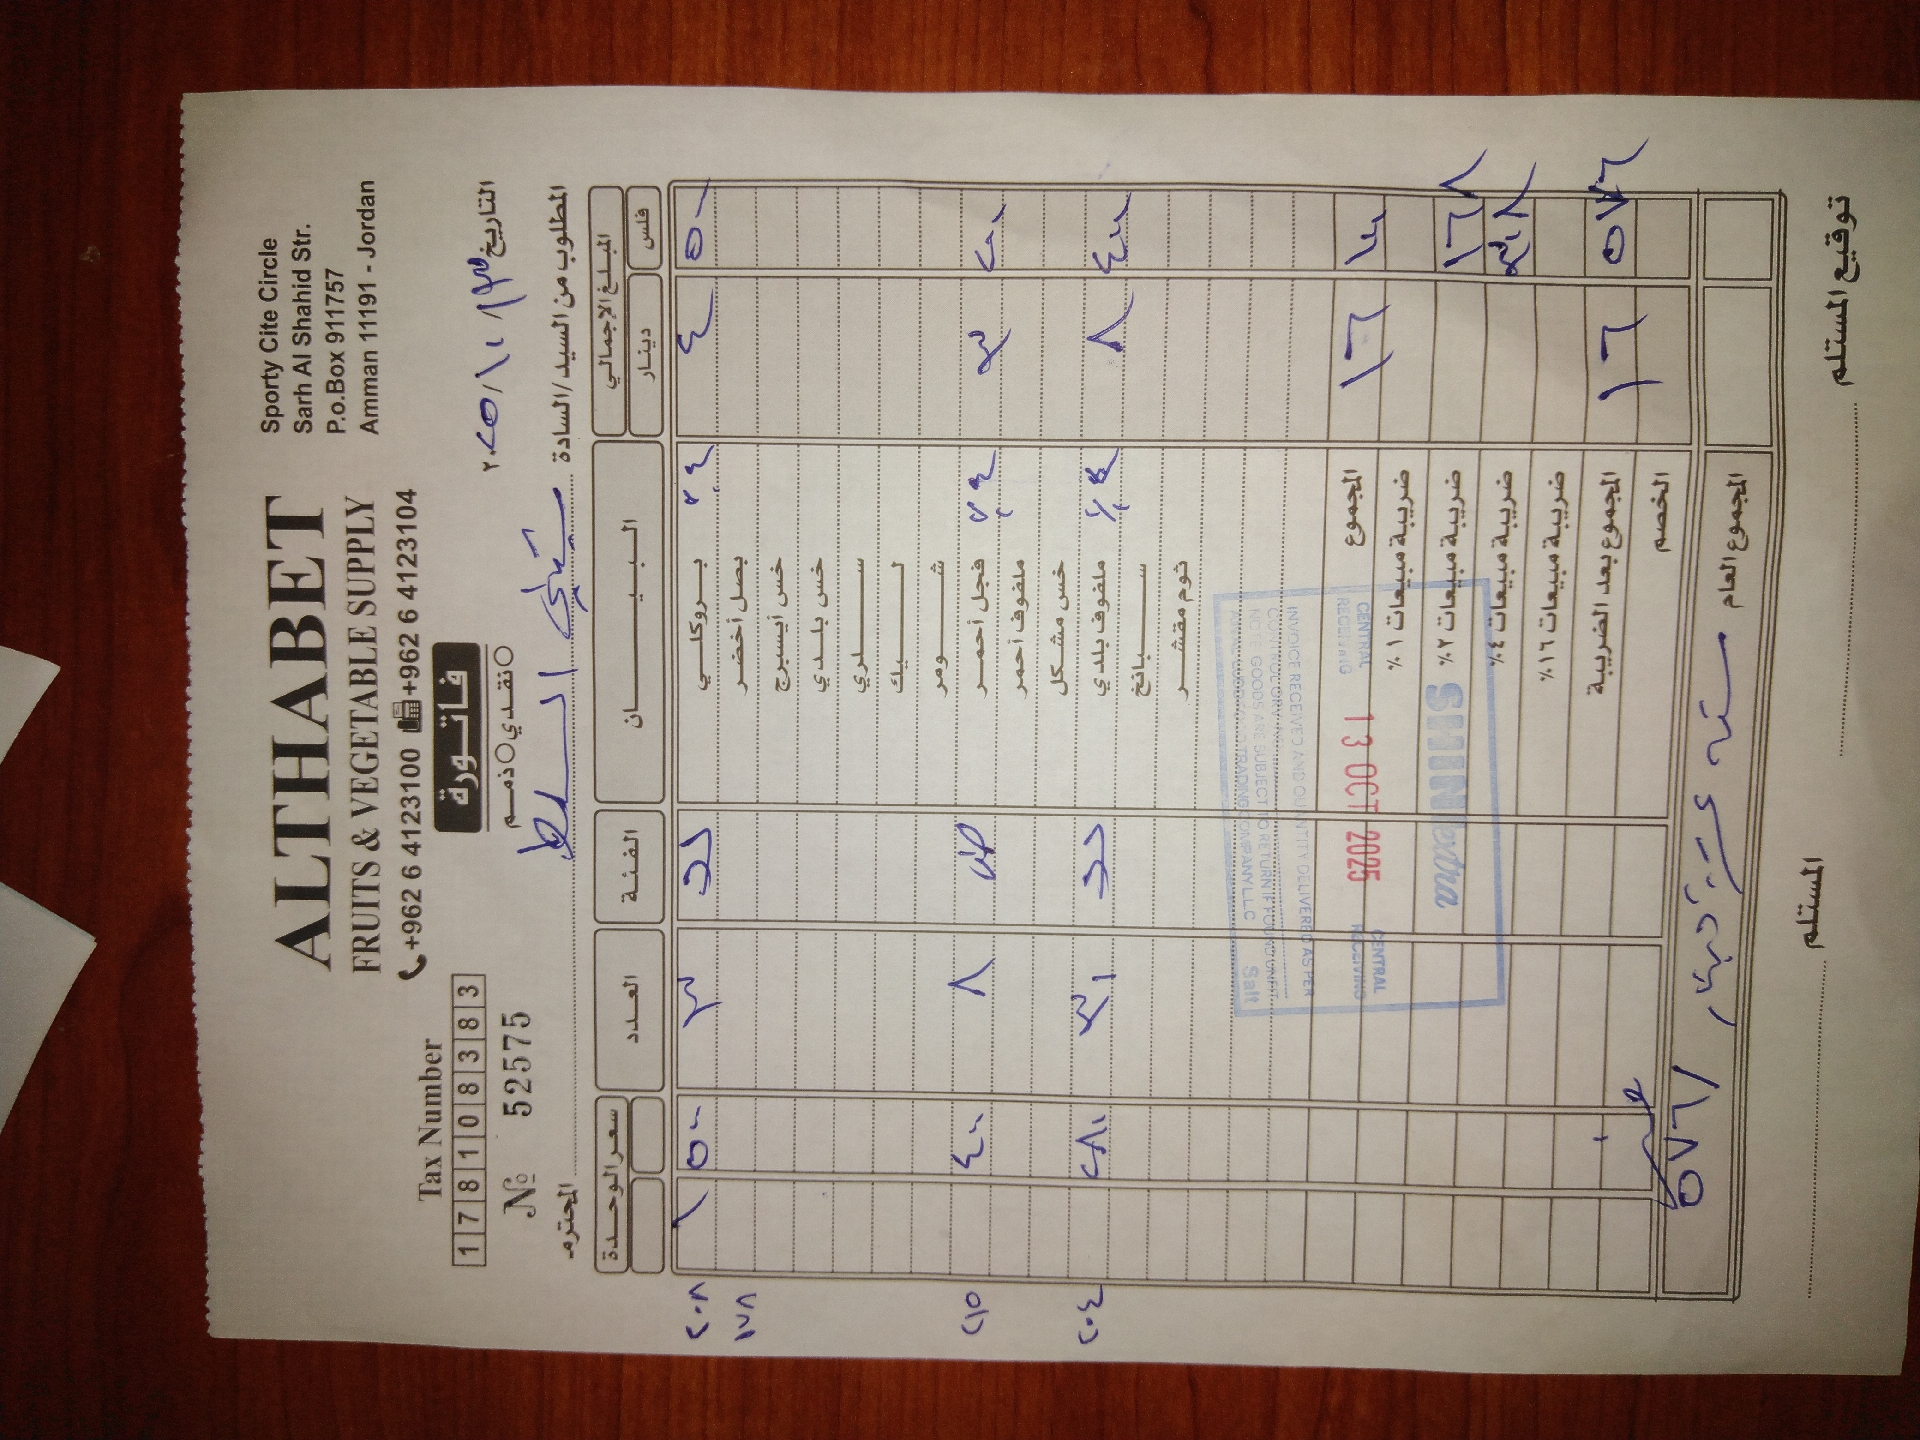 ALTHABET
FRUITS & VEGETABLE SUPPLY
+962 6 4123100 +962 6 4123104
Sporty Cite Circle
Sarh Al Shahid Str.
P.o.Box 911757
Amman 11191 - Jordan
Tax Number
1 7 8 1 0 8 3 8 3
№ 52575
فاتورة
نقدي ذمم
التاريخ ٢٠٢٥/١٠/١٣
المطلوب من السيد/السادة السلط المحترم
المبلغ الإجمالي البيـــــان الفئة العدد سعر الوحدة
فلس دينار
٥٠٠ ٤ بروكلي ٣ ٥٠٠ ١ ٢٠٨
بصل أخضر ١٧٨
خس آيسبرج
خس بلدي
سلري
ليك
شومر
٢٠٠ ٣ فجل أحمر ٨ ٤٠٠ ٢١٥
ملفوف أحمر
خس مشكل
٤٠٠ ٨ ملفوف بلدي ٣٠ ٢٨٠ ٢٠٤
سبانخ
ثوم مقشر
١٠٠ ١٦ المجموع
ضريبة مبيعات ١%
١٦٨ ضريبة مبيعات ٢%
٣٠٨ ضريبة مبيعات ٤%
ضريبة مبيعات ١٦%
٥٧٦ ١٦ المجموع بعد الضريبة
الخصم
المجموع العام ستة عشر دينار ٥٧٦/
المستلم
توقيع المستلم
CENTRAL RECEIVING
INVOICE RECEIVED AND QUANTITY DELIVERED AS PER
NOTE GOODS ARE SUBJECT TO RETURN IF FOUND UNFIT
TRADING COMPANY L.L.C Salt
13 OCT 2025
SHINextra
CENTRAL RECEIVING